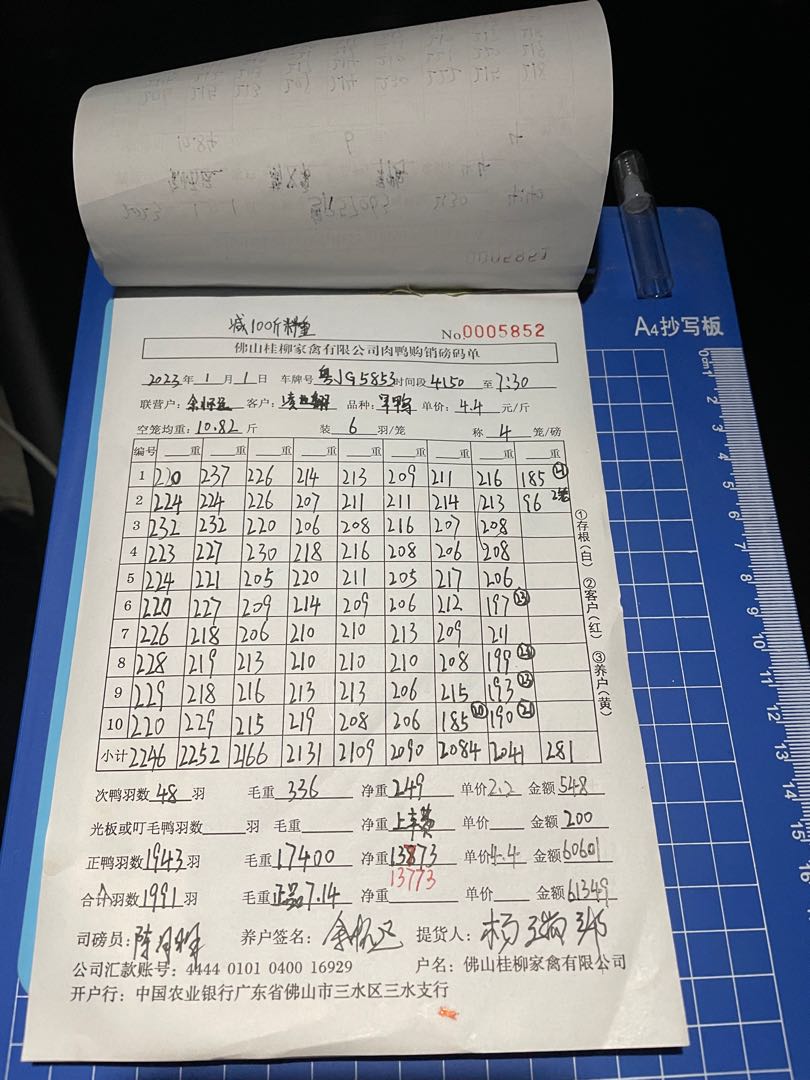 减100斤料重
No.0005852
佛山桂柳家禽有限公司肉鸭购销磅码单
2023年1月1日 车牌号 粤JG5853 时间段 4:50 至 7:30
联营户: 客户: 品种: 单价: 4.4 元/斤
空笼均重: 10.82 斤 装 6 羽/笼 称 4 笼/磅
编号 重 重 重 重 重 重 重 重 重
1 220 237 226 214 213 209 211 216 185 21
2 224 224 226 207 211 211 214 213 96 2笼
3 232 232 220 206 208 216 207 208
4 223 227 230 218 216 208 206 208
5 224 221 205 220 211 205 217 206
6 220 227 209 214 209 206 212 197 23
7 226 218 206 210 210 213 209 211
8 228 219 213 210 210 210 208 199 23
9 229 218 216 213 213 206 215 193 23
10 220 229 215 219 208 206 185 20 190 21
小计 2246 2252 2166 2131 2109 2090 2084 2041 281
次鸭羽数 48 羽 毛重 336 净重 249 单价 2.2 金额 548
光板或叮毛鸭羽数 羽 毛重 上车费 单价 金额 200
正鸭羽数 1943 羽 毛重 17400 净重 13873 单价 4.4 金额 60601
13773
合计羽数 1991 羽 毛重 正品7.14 净重 单价 金额 61349
司磅员: 养户签名: 提货人:
公司汇款账号: 4444 0101 0400 16929 户名: 佛山桂柳家禽有限公司
开户行: 中国农业银行广东省佛山市三水区三水支行
①存根(白) ②客户(红) ③养户(黄)
A4抄写板
0cm 1 2 3 4 5 6 7 8 9 10 11 12 13 14 15 16